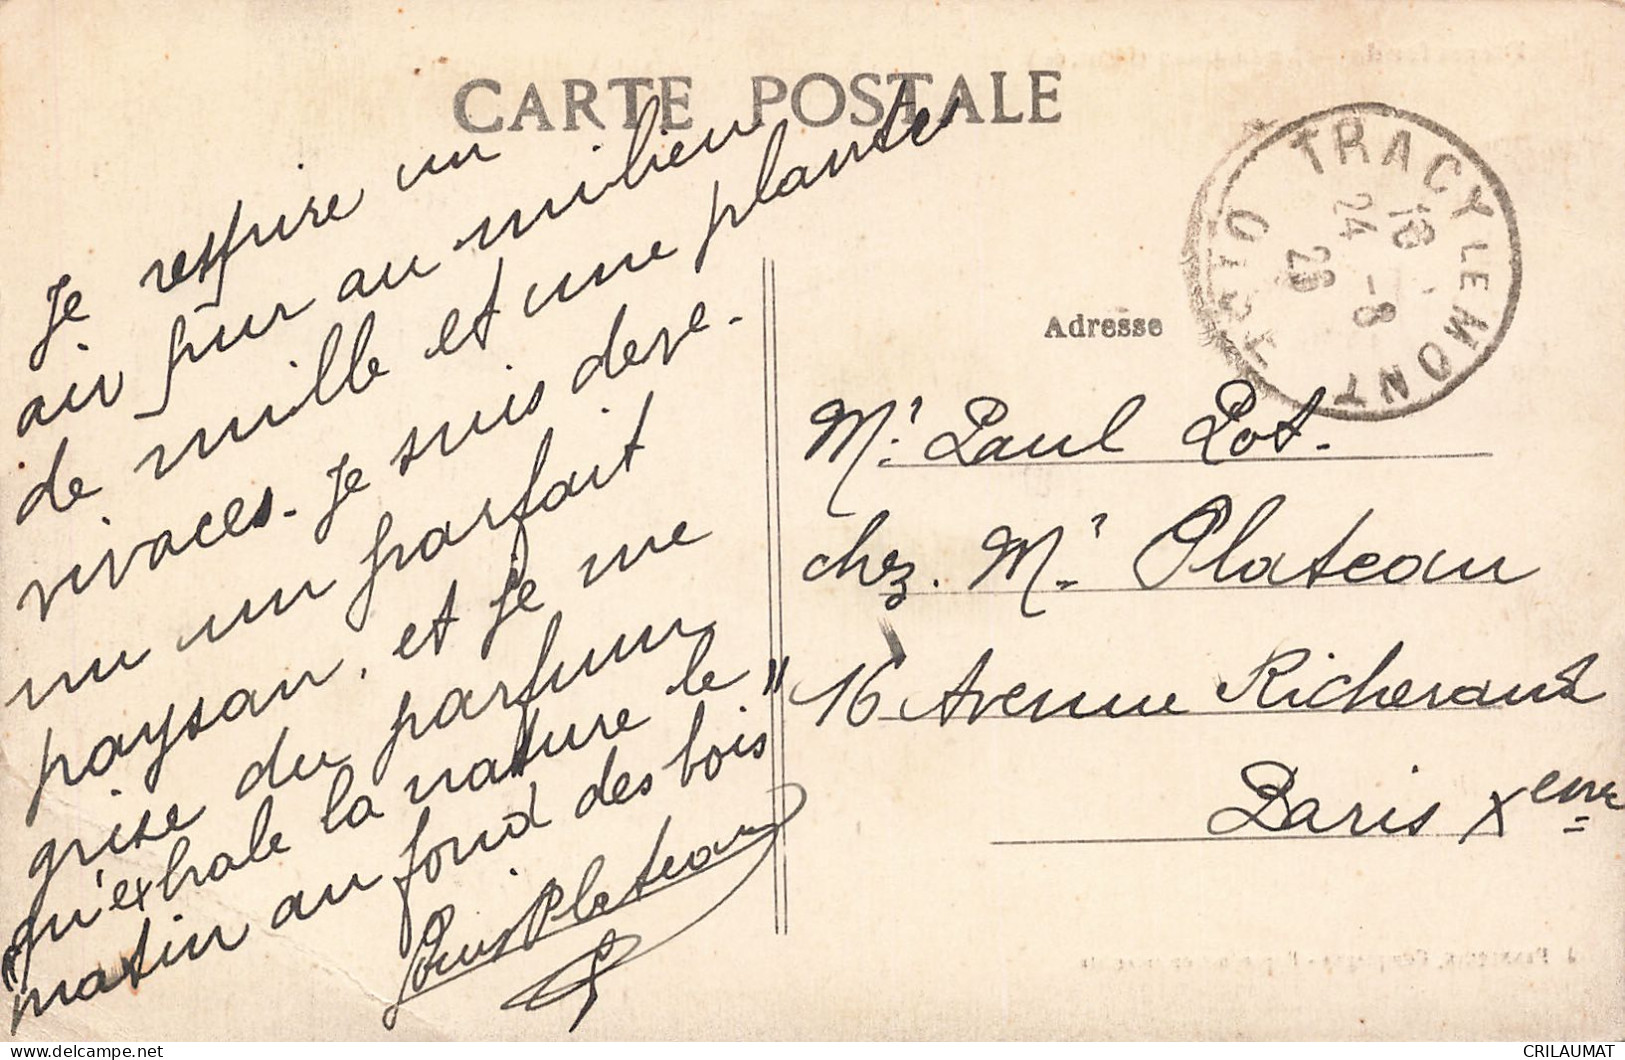 CARTE POSTALE
Je respire un
air pur au milieu
de mille et une plantes
vivaces. Je suis deve-
nu un parfait
paysan, et je me
grise du parfum
qu'exhale la nature le
matin au fond des bois"
Louis Plateau
TRACY LE MONT
OISE
18
24 - 8
26
Adresse
Mr. Paul Pot.
chez. Mr. Plateau
16 Avenue Richerand
Paris Xeme
CRILAUMAT